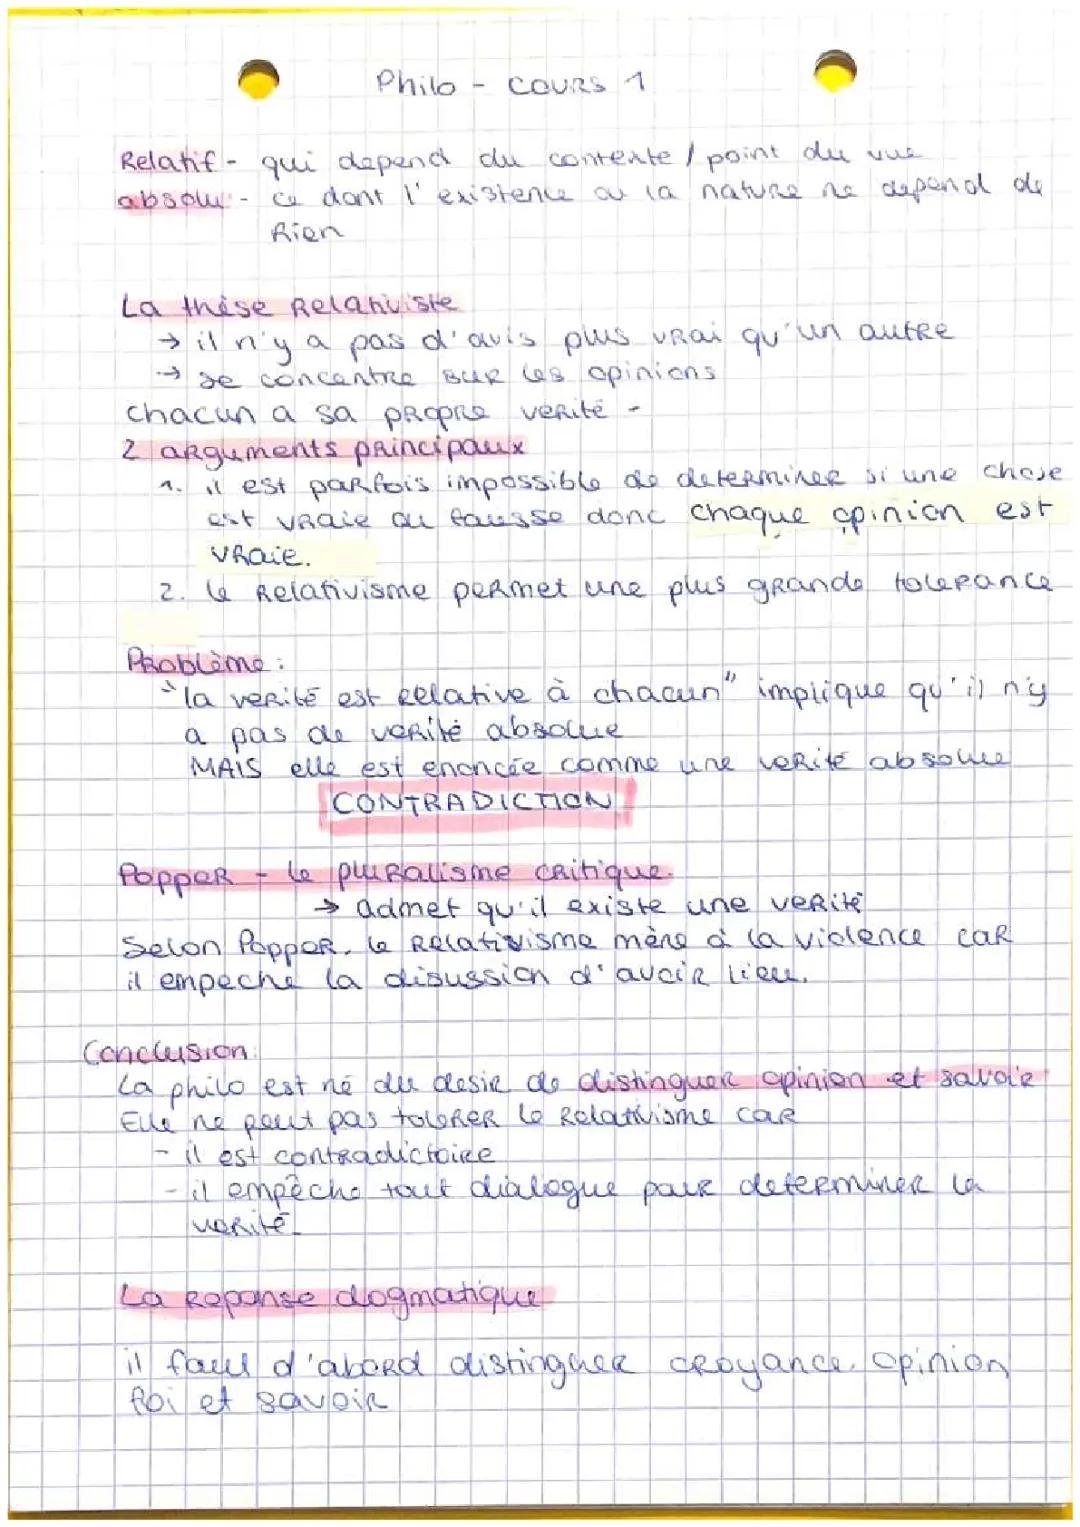 Philo - cours 1
Relatif - qui depend du contexte / point du vue
absolu : - ce dont l'existence ou la nature ne depend de
Rien
La thèse Relativiste
→ il n'y a pas d'avis plus vrai qu'un autre
→ se concentre sur les opinions
chacun a sa propre verité -
2 arguments principaux
1. il est parfois impossible de determiner si une chose
est vraie ou fausse donc chaque opinion est
vraie.
2. le Relativisme permet une plus grande tolerance
Problème :
"la verité est relative à chacun" implique qu'il n'y
a pas de verité absolue
MAIS elle est enoncée comme une verité absolue
CONTRADICTION
Popper - le pluralisme critique.
→ admet qu'il existe une verité
Selon Popper, le Relativisme mène à la violence car
il empeche la disussion d'avoir lieu.
Conclusion :
La philo est né du desir de distinguer opinion et savoir
Elle ne peut pas tolerer le Relativisme car
- il est contradictoire
- il empêche tout dialogue pour determiner la
verité.
La Reponse dogmatique
il faut d'abord distinguer croyance, opinion,
foi et savoir